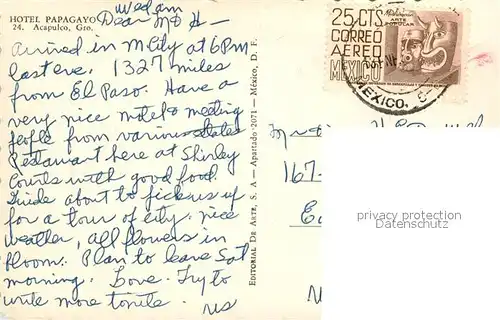 HOTEL PAPAGAYO
24. Acapulco, Gro.
Wed am
Dear M & H—
arrived in M City at 6 P.m
last eve. 1327 miles
from El Paso. Have a
very nice motel & meeting
people from various states
Restaurant here at Shirley
Courts with good food.
Guide about to pick us up
for a tour of city. nice
weather, all flowers in
bloom. Plan to leave Sat
morning. Love. Try to
write more tonite.
us
EDITORIAL DE ARTE, S. A. — Apartado 2071 — México, D. F.
25 CTS
CORREO
AEREO
MEXICO
ARTE
POPULAR
MEXICO,
167-
privacy protection
Datenschutz